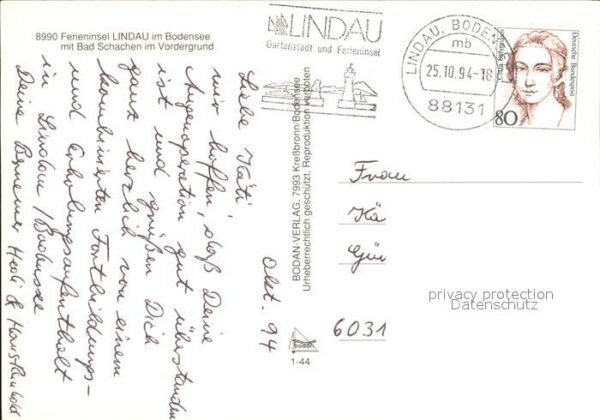 8990 Ferieninsel LINDAU im Bodensee
mit Bad Schachen im Vordergrund
LINDAU
Gartenstadt und Ferieninsel
LINDAU, BODENS
mb
25.10.94-18
88131
Deutsche Bundespost
80
Okt. 94
Liebe Käti,
wir hoffen, daß Deine
Augenoperation gut überstanden
ist und grüßen Dich
ganz herzlich von einem
kombinierten Fortbildungs-
und Erholungsaufenthalt
in Lindau/Bodensee
Deine Berner Heidi &
BODAN-VERLAG, 7993 Kreßbronn/Bodensee
Urheberrechtlich geschützt. Reproduktion verboten
bodan
1-44
Frau
Kä
Gü
6031
privacy protection
Datenschutz